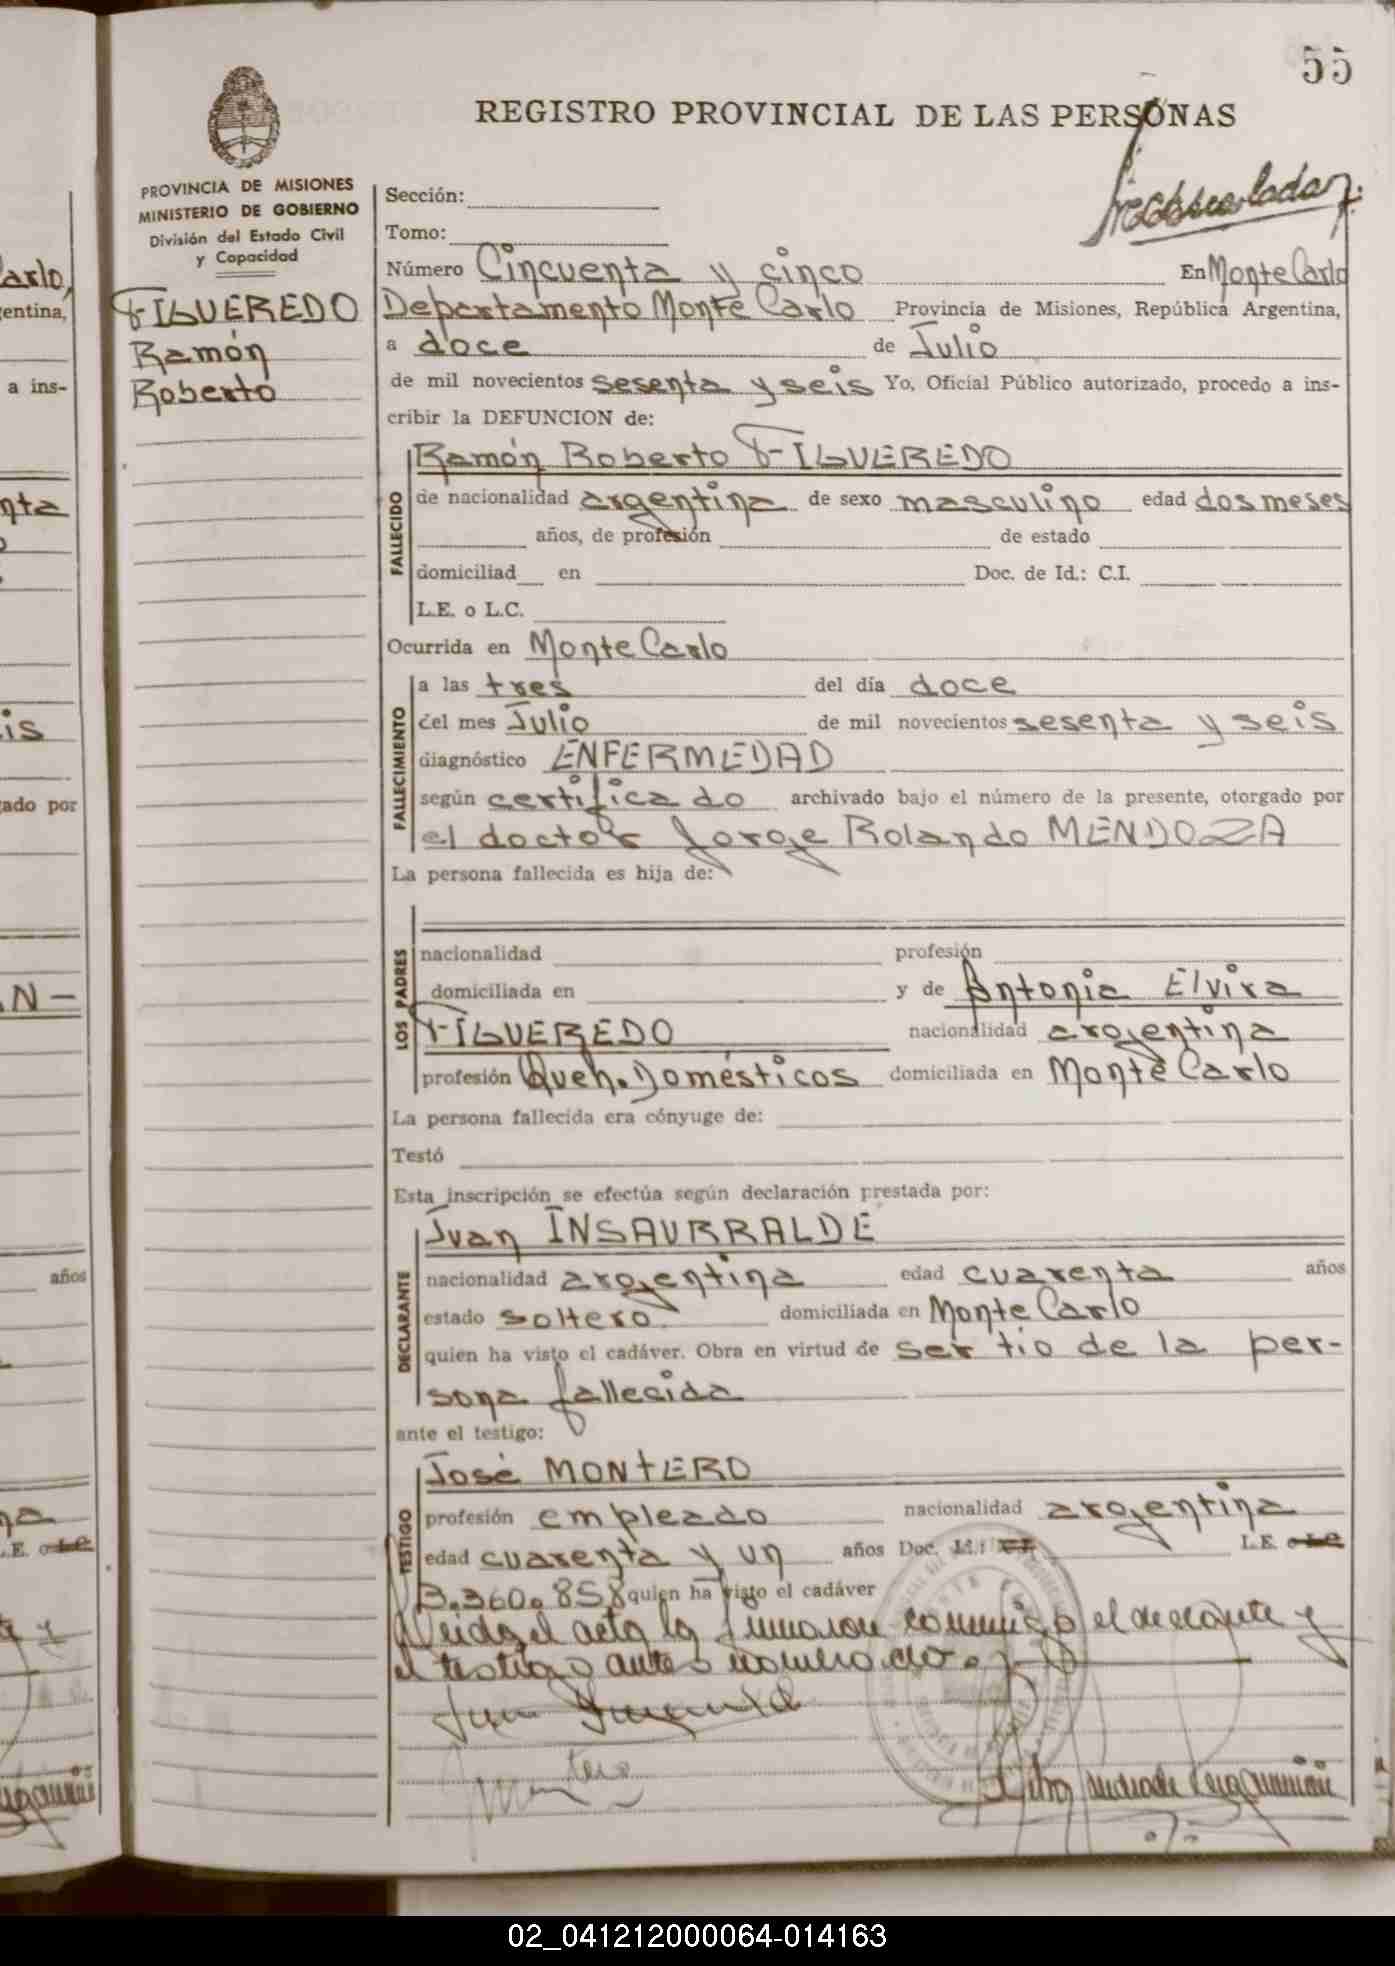 55
REGISTRO PROVINCIAL DE LAS PERSONAS
PROVINCIA DE MISIONES
MINISTERIO DE GOBIERNO
División del Estado Civil
y Capacidad
FIGUEREDO
Ramón
Roberto
Sección:
Tomo:
Número Cincuenta y cinco En Monte Carlo
Departamento Monte Carlo Provincia de Misiones, República Argentina,
a doce de Julio
de mil novecientos sesenta y seis Yo, Oficial Público autorizado, procedo a ins-
cribir la DEFUNCION de:
FALLECIDO
Ramón Roberto FIGUEREDO
de nacionalidad argentina de sexo masculino edad dos meses
años, de profesión de estado
domiciliad en Doc. de Id.: C.I.
L.E. o L.C.
Ocurrida en Monte Carlo
FALLECIMIENTO
a las tres del día doce
del mes Julio de mil novecientos sesenta y seis
diagnóstico ENFERMEDAD
según certificado archivado bajo el número de la presente, otorgado por
el doctor Jorge Rolando MENDOZA
La persona fallecida es hija de:
LOS PADRES
nacionalidad profesión
domiciliada en y de Antonia Elvira
FIGUEREDO nacionalidad argentina
profesión Queh. Domésticos domiciliada en Monte Carlo
La persona fallecida era cónyuge de:
Testó
Esta inscripción se efectúa según declaración prestada por:
DECLARANTE
Juan INSAURRALDE
nacionalidad argentina edad cuarenta años
estado soltero domiciliada en Monte Carlo
quien ha visto el cadáver. Obra en virtud de ser tio de la per-
sona fallecida
ante el testigo:
TESTIGO
José MONTERO
profesión empleado nacionalidad argentina
edad cuarenta y un años Doc. Id.: C.I. L.E. o L.C.
3.360.858 quien ha visto el cadáver
Leida el acta la firmaron conmigo el declarante y
el testigo antes nomerado.
02_041212000064-014163